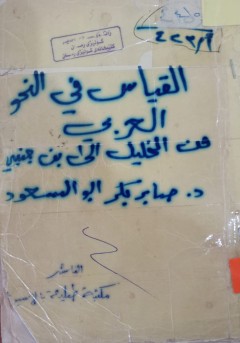 ٤٢٣/١
القياس في النحو
العربي
من الخليل الى بن جني
د. صابر بكر ابو السعود
الناشر
مكتبة